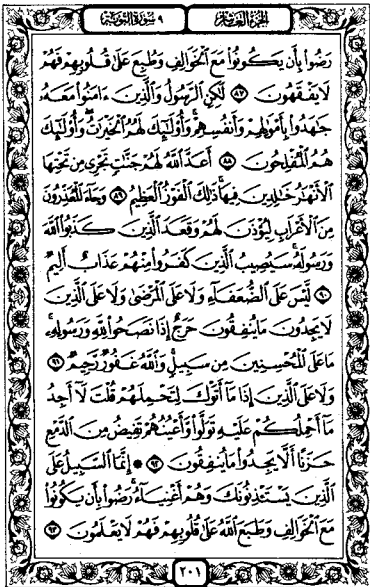 الجزء العاشر
٩ سورة التوبة
رَضُوا۟ بِأَن يَكُونُوا۟ مَعَ ٱلْخَوَالِفِ وَطُبِعَ عَلَىٰ قُلُوبِهِمْ فَهُمْ
لَا يَفْقَهُونَ ٨٧ لَٰكِنِ ٱلرَّسُولُ وَٱلَّذِينَ ءَامَنُوا۟ مَعَهُۥ
جَٰهَدُوا۟ بِأَمْوَٰلِهِمْ وَأَنفُسِهِمْ ۚ وَأُو۟لَٰٓئِكَ لَهُمُ ٱلْخَيْرَٰتُ ۖ وَأُو۟لَٰٓئِكَ
هُمُ ٱلْمُفْلِحُونَ ٨٨ أَعَدَّ ٱللَّهُ لَهُمْ جَنَّٰتٍ تَجْرِى مِن تَحْتِهَا
ٱلْأَنْهَٰرُ خَٰلِدِينَ فِيهَا ۚ ذَٰلِكَ ٱلْفَوْزُ ٱلْعَظِيمُ ٨٩ وَجَآءَ ٱلْمُعَذِّرُونَ
مِنَ ٱلْأَعْرَابِ لِيُؤْذَنَ لَهُمْ وَقَعَدَ ٱلَّذِينَ كَذَبُوا۟ ٱللَّهَ
وَرَسُولَهُۥ ۚ سَيُصِيبُ ٱلَّذِينَ كَفَرُوا۟ مِنْهُمْ عَذَابٌ أَلِيمٌ
٩٠ لَّيْسَ عَلَى ٱلضُّعَفَآءِ وَلَا عَلَى ٱلْمَرْضَىٰ وَلَا عَلَى ٱلَّذِينَ
لَا يَجِدُونَ مَا يُنفِقُونَ حَرَجٌ إِذَا نَصَحُوا۟ لِلَّهِ وَرَسُولِهِۦ ۚ
مَا عَلَى ٱلْمُحْسِنِينَ مِن سَبِيلٍ ۚ وَٱللَّهُ غَفُورٌ رَّحِيمٌ ٩١
وَلَا عَلَى ٱلَّذِينَ إِذَا مَآ أَتَوْكَ لِتَحْمِلَهُمْ قُلْتَ لَآ أَجِدُ
مَآ أَحْمِلُكُمْ عَلَيْهِ تَوَلَّوا۟ وَّأَعْيُنُهُمْ تَفِيضُ مِنَ ٱلدَّمْعِ
حَزَنًا أَلَّا يَجِدُوا۟ مَا يُنفِقُونَ ٩٢ ۞ إِنَّمَا ٱلسَّبِيلُ عَلَى
ٱلَّذِينَ يَسْتَـْٔذِنُونَكَ وَهُمْ أَغْنِيَآءُ ۚ رَضُوا۟ بِأَن يَكُونُوا۟
مَعَ ٱلْخَوَالِفِ وَطَبَعَ ٱللَّهُ عَلَىٰ قُلُوبِهِمْ فَهُمْ لَا يَعْلَمُونَ ٩٣
٢٠١